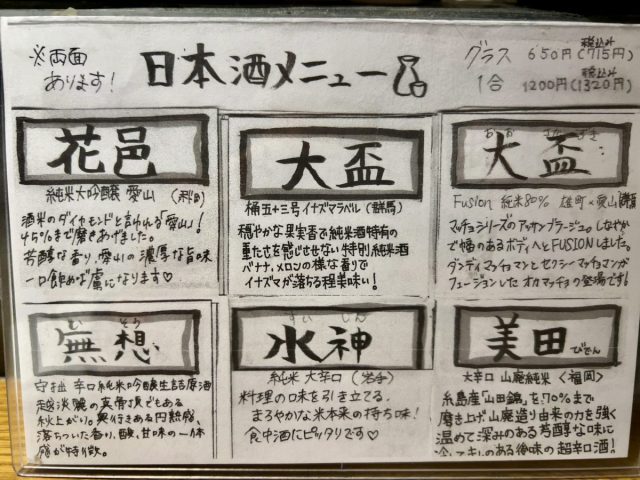 ※両面
あります!
日本酒メニュー
グラス 650円(715円)税込み
1合 1200円(1320円)税込み
花邑
純米大吟醸 愛山 (秋田)
酒米のダイヤモンドと言われる「愛山」!
45%まで磨きあげました。
芳醇な香り、愛山の濃厚な旨味
一口飲めば虜になります♡
大盃
桶五十三号イナズマラベル(群馬)
穏やかな果実香で純米酒特有の
重たさを感じさせない特別純米酒
バナナ、メロンの様な香りで
イナズマが落ちる程美味い!
おおさかずき
大盃
Fusion 純米80% 雄町×愛山
マッチョシリーズのアッサンブラージュのしなやか
で幅のあるボディへとFUSIONしました。
ダンディマッチョマンとセクシーマッチョマンが
フュージョンしたオカマッチョの登場です!
むそう
無想
守拙 辛口純米吟醸生詰原酒
越淡麗の真骨頂でもある
秋上がり。奥行きある円熟感、
落ちついた香り、酸、甘味の一体
感が特徴。
すいじん
水神
純米 大辛口 (岩手)
料理の味を引き立てる、
まろやかな米本来の持ち味!
食中酒にピッタリです♡
美田
びでん
大辛口 山廃純米 <福岡>
糸島産「山田錦」を70%まで
磨き上げ山廃造り由来の力を強く
温めて深みのある芳醇な味に
のある後味の超辛口酒!